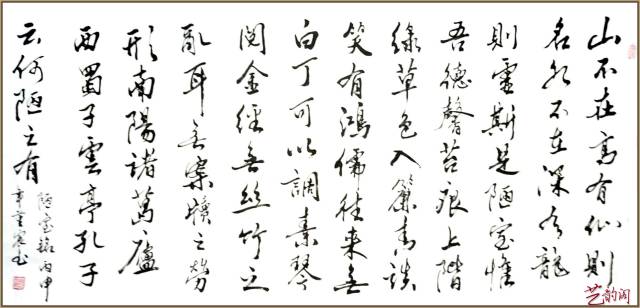 山不在高有仙則
名水不在深有龍
則靈斯是陋室惟
吾德馨苔痕上階
綠草色入簾青談
笑有鴻儒往來無
白丁可以調素琴
閱金經無絲竹之
亂耳無案牘之勞
形南陽諸葛廬
西蜀子雲亭孔子
云何陋之有
陋室銘丙申
书
艺韵阁